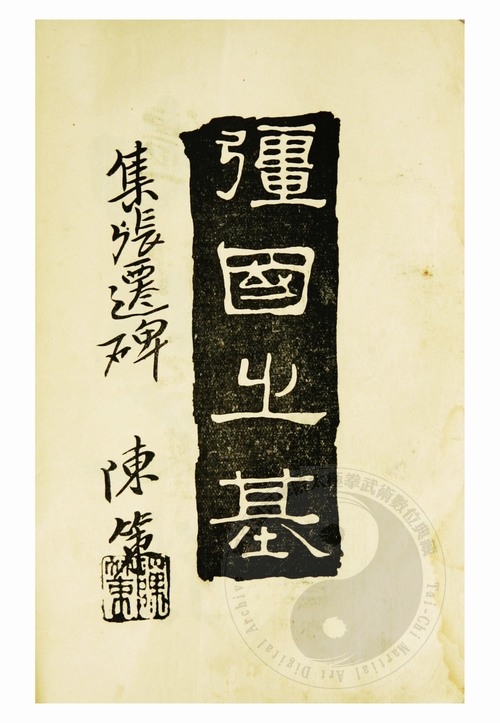 彊國之基
集張遷碑
陳策
陳策
太極拳武術數位典藏
Tai-Chi Martial Art Digital Archive